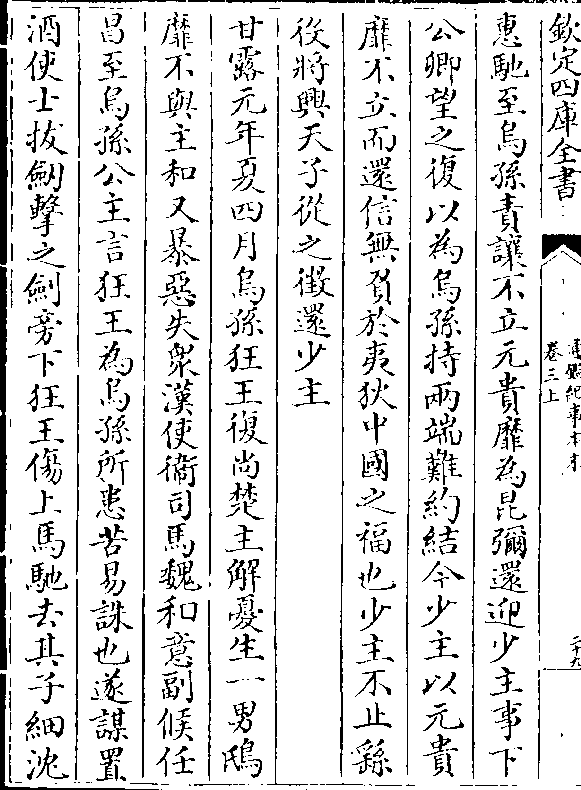 欽定四庫全書
通鑑紀事本末
卷三上
二十九
惠馳至烏孫責讓不立元貴靡為昆彌還迎少主事下
公卿望之復以為烏孫持兩端難約結今少主以元貴
靡不立而還信無負於夷狄中國之福也少主不止繇
役將興天子從之徴還少主
甘露元年夏四月烏孫狂王復尚楚主解憂生一男鴟
靡不與主和又暴惡失衆漢使衞司馬魏和意副候任
昌至烏孫公主言狂王為烏孫所患苦易誅也遂謀置
酒使士拔劒擊之劒旁下狂王傷上馬馳去其子細沈